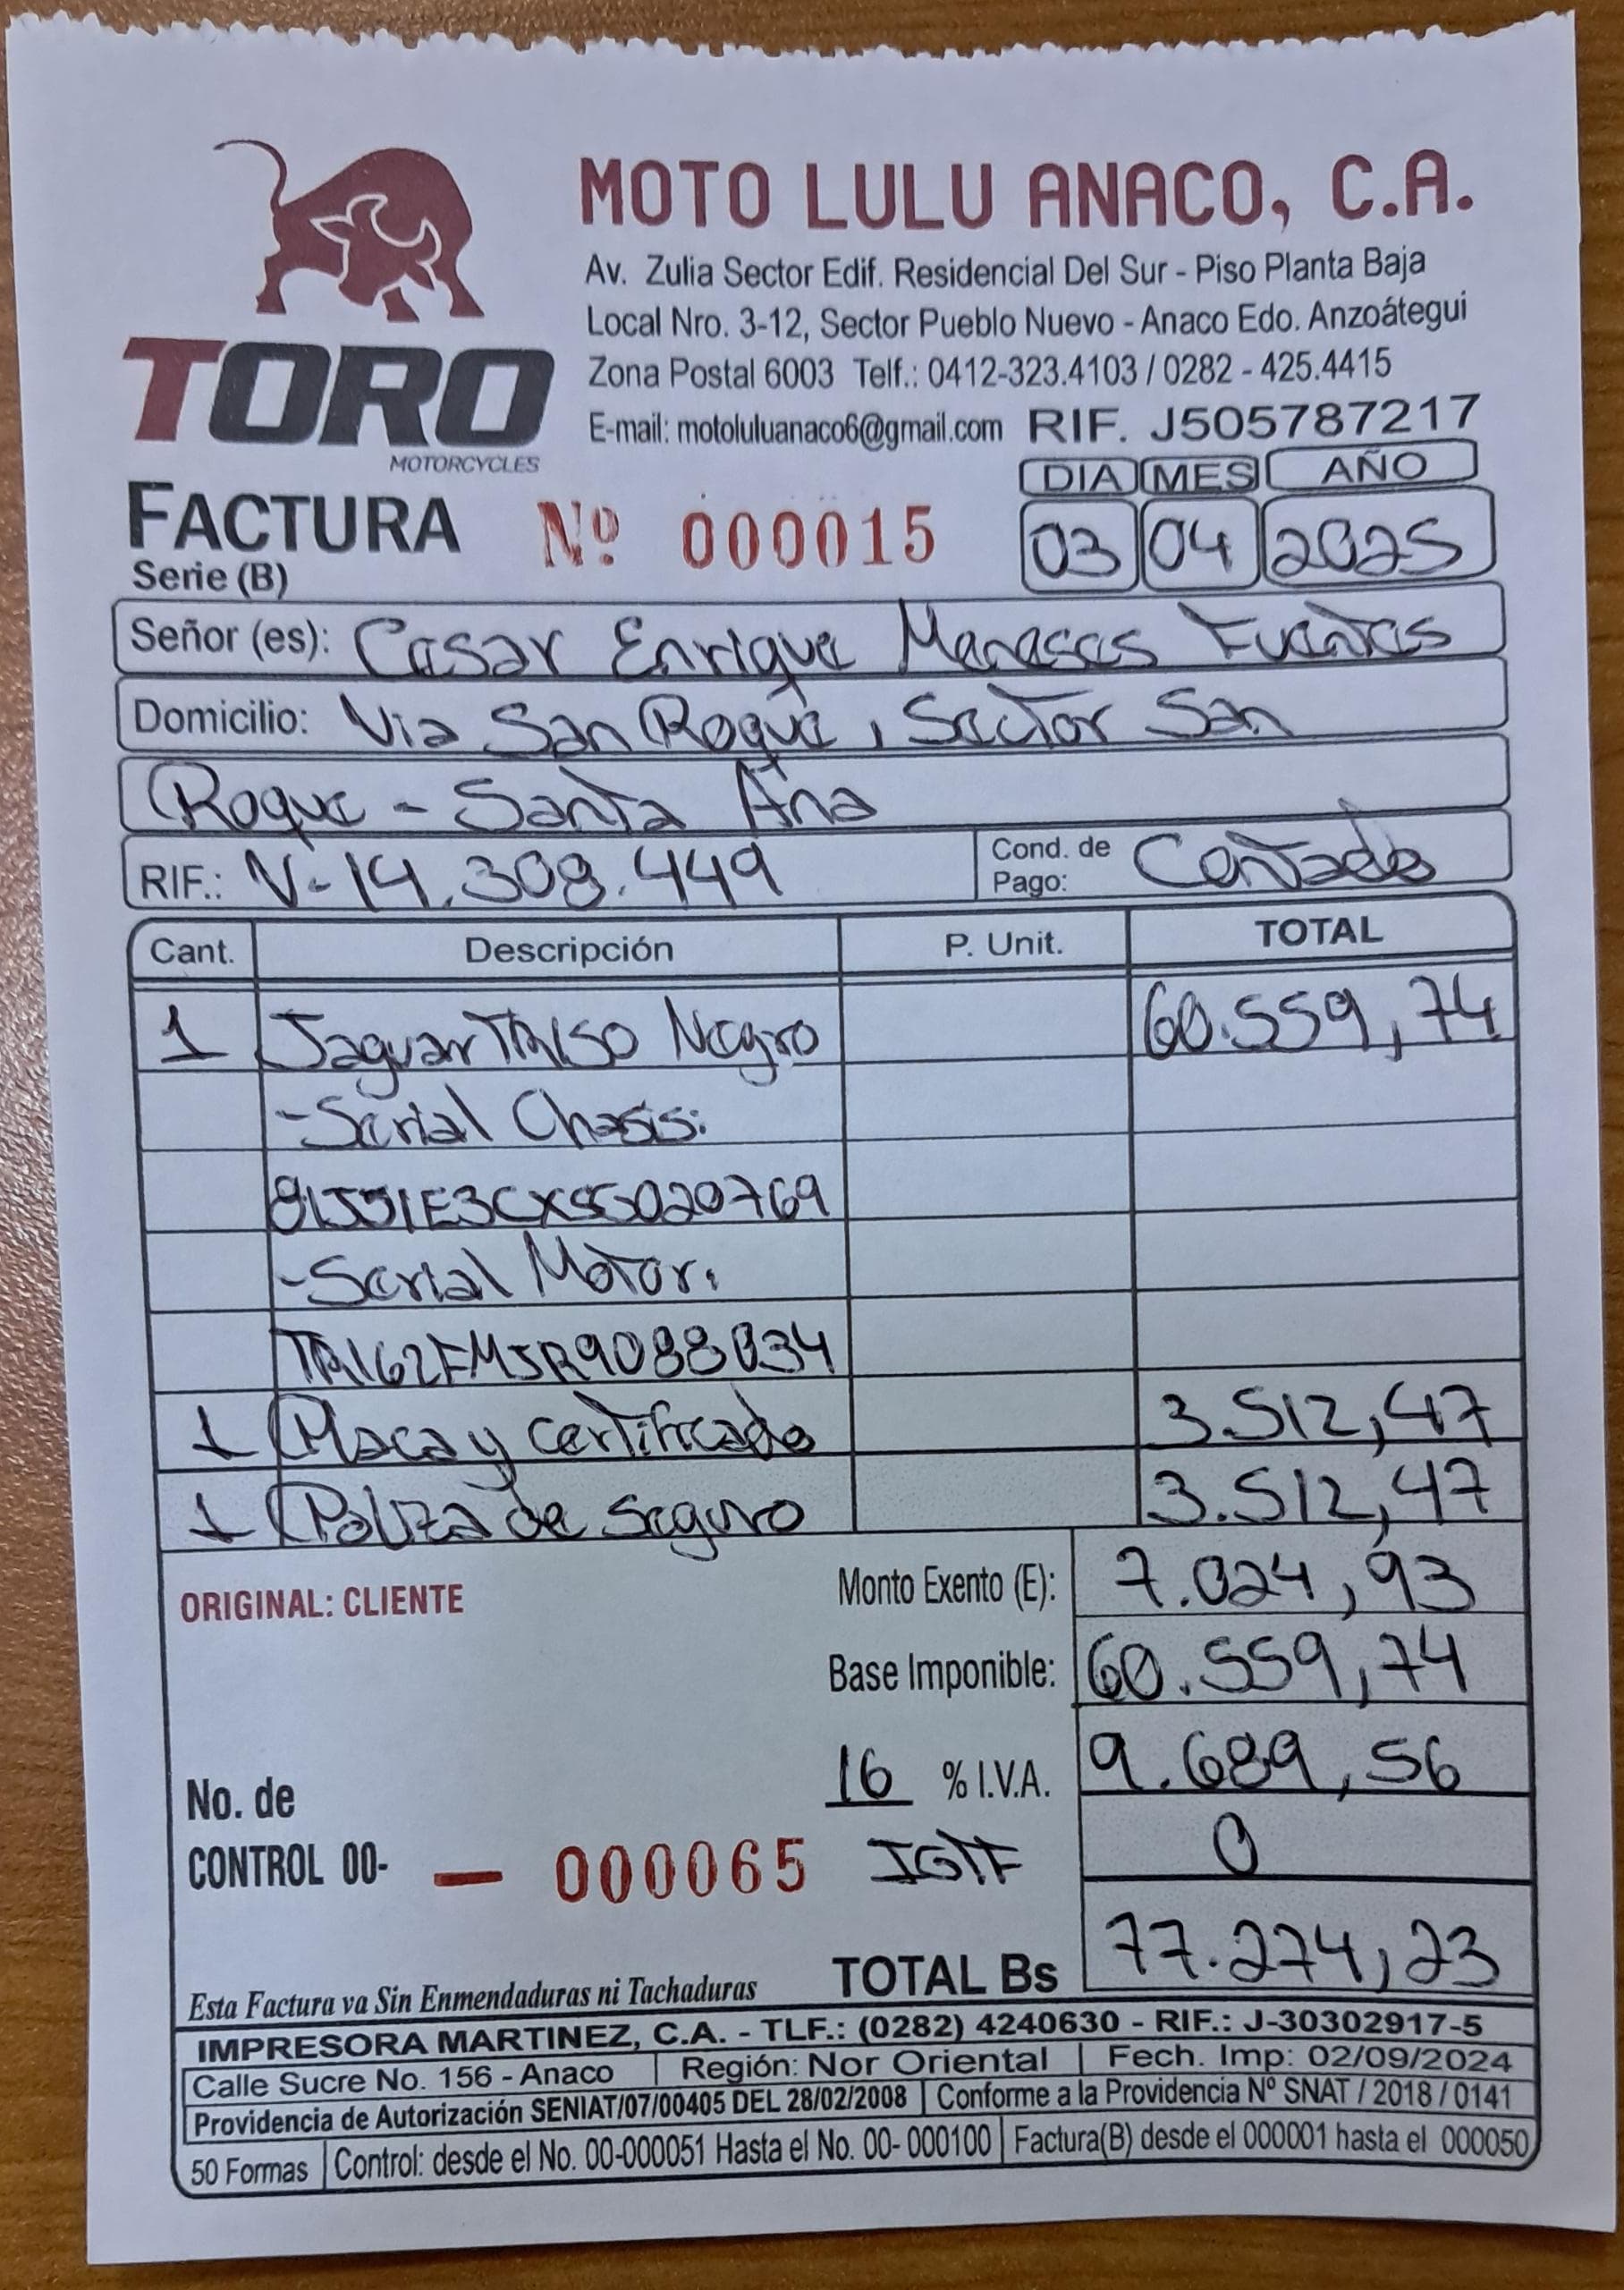 MOTO LULU ANACO, C.A.
Av. Zulia Sector Edif. Residencial Del Sur - Piso Planta Baja
Local Nro. 3-12, Sector Pueblo Nuevo - Anaco Edo. Anzoátegui
Zona Postal 6003 Telf.: 0412-323.4103 / 0282 - 425.4415
E-mail: motoluluanaco6@gmail.com RIF. J505787217
TORO
MOTORCYCLES
DIA MES AÑO
FACTURA Nº 000015 03 04 2025
Serie (B)
Señor (es): Cesar Enrique Meneses Fuentes
Domicilio: Via San Roque, Sector San
Roque - Santa Ana
RIF.: V-14.308.449 Cond. de Pago: Contado
Cant. Descripción P. Unit. TOTAL
1 Jaguar TR150 Negro 60.559,74
- Serial Chasis:
- Serial Motor:
TR162FMJR9088034
1 Placa y certificado 3.512,47
1 Poliza de seguro 3.512,47
ORIGINAL: CLIENTE Monto Exento (E): 7.024,93
Base Imponible: 60.559,74
16 % I.V.A. 9.689,56
No. de
CONTROL 00- — 000065 IGTF 0
TOTAL Bs 77.274,23
Esta Factura va Sin Enmendaduras ni Tachaduras
IMPRESORA MARTINEZ, C.A. - TLF.: (0282) 4240630 - RIF.: J-30302917-5
Calle Sucre No. 156 - Anaco Región: Nor Oriental Fech. Imp: 02/09/2024
Providencia de Autorización SENIAT/07/00405 DEL 28/02/2008 Conforme a la Providencia Nº SNAT / 2018 / 0141
50 Formas Control: desde el No. 00-000051 Hasta el No. 00- 000100 Factura(B) desde el 000001 hasta el 000050